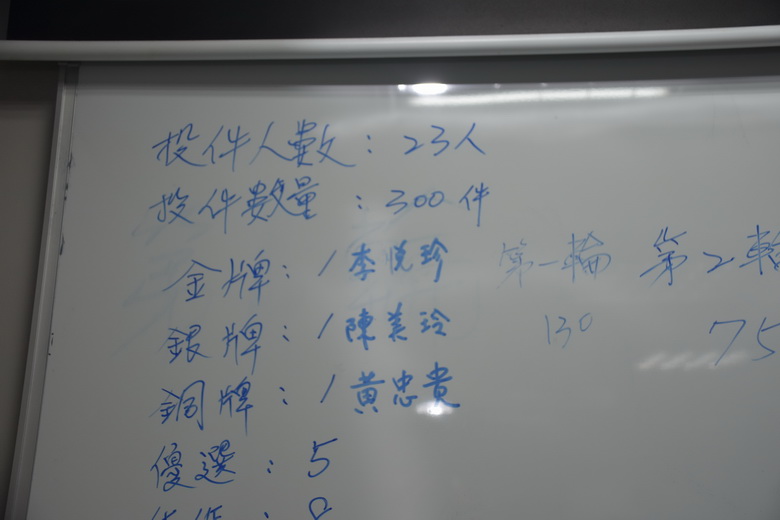 投件人數：23人
投件數量：300件
金牌：1李悅珍 第一輪 第2輪
銀牌：1陳美玲 130 75
銅牌：1黃忠貴
優選：5
佳作：8